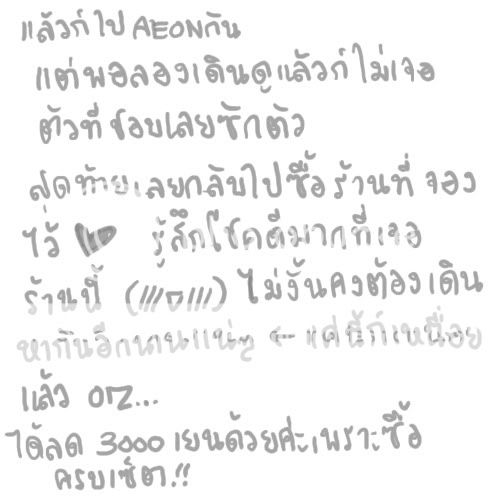 แล้วก็ไป AEONกัน
แต่พอลองเดินดูแล้วก็ไม่เจอ
ตัวที่ชอบเลยซักตัว
สุดท้ายเลยกลับไปซื้อร้านที่จอง
ไว้ ♥ รู้สึกโชคดีมากที่เจอ
ร้านนี้ (///▽///) ไม่งั้นคงต้องเดิน
หากันอีกนานแน่ๆ ← แค่นี้ก็เหนื่อย
แล้ว OTZ...
ได้ลด 3000 เยนด้วยค่ะเพราะซื้อ
ครบเซ็ต.!!